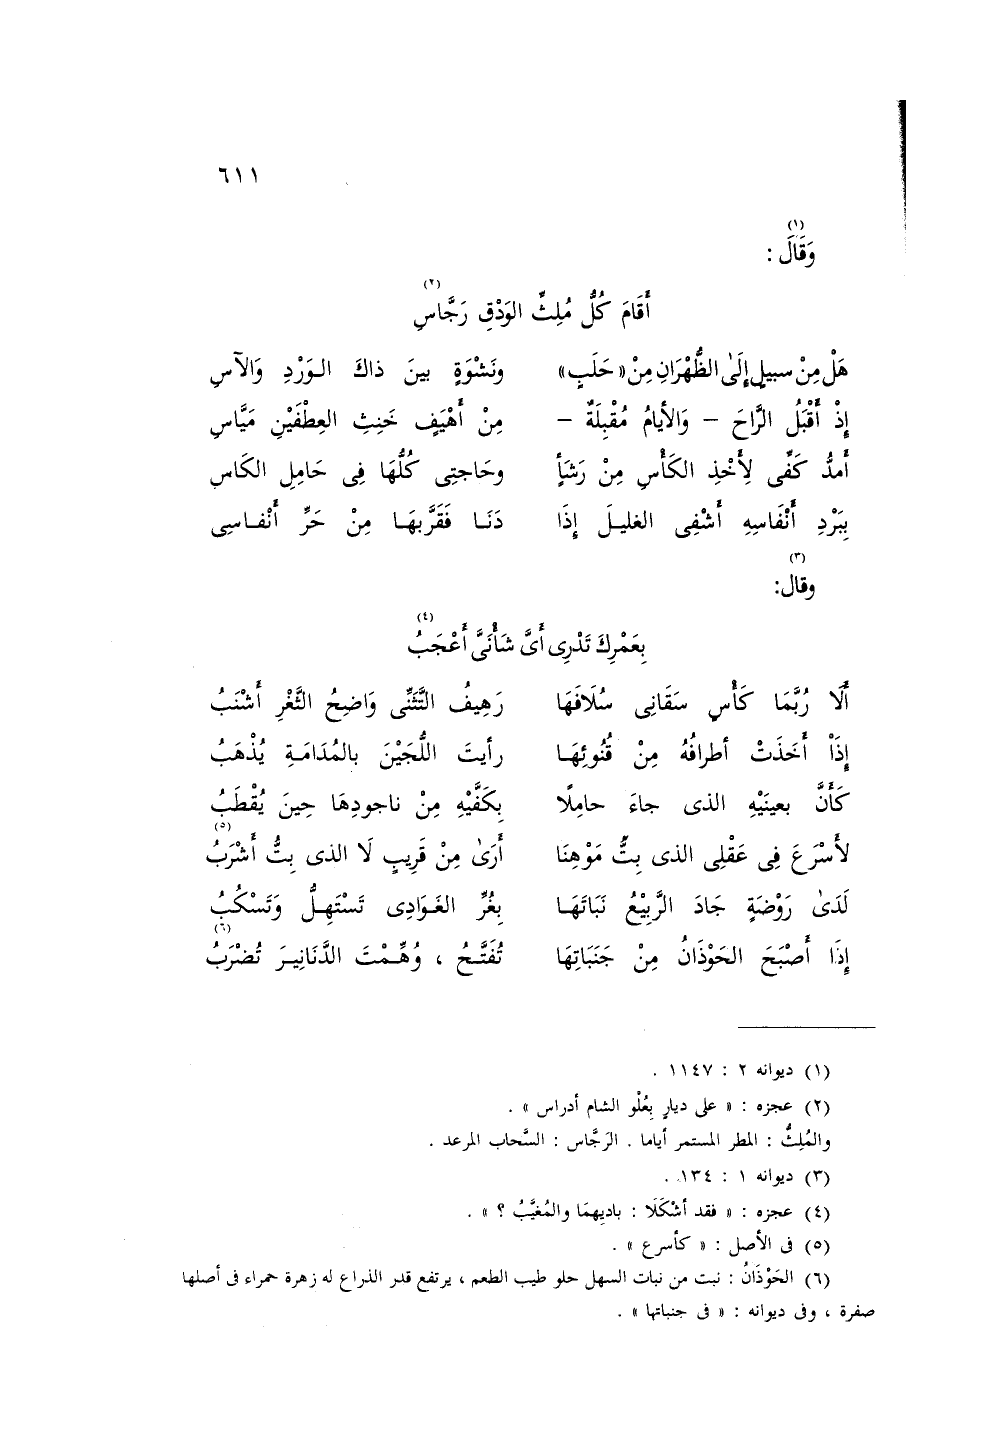 ٦١١
(١)
وَقَالَ :
(٢)
أَقَامَ كُلُّ مُلِثِّ الوَدْقِ رَجَّاسِ
هَلْ مِنْ سبيلٍ إِلَىٰ الظُّهْرَانِ مِنْ «حَلَبٍ» ونَشْوَةٍ بينَ ذاكَ الـوَرْدِ وَالآسِ
إِذْ أَقْبَلُ الرَّاحَ – وَالأيامُ مُقْبِلَةٌ – مِنْ أَهْيَفٍ خَنِثِ العِطْفَيْنِ مَيَّاسِ
أَمدُّ كَفِّى لِأَخْذِ الكَأْسِ مِنْ رَشَأٍ وحَاجتِى كُلُّهَا فِى حَامِلِ الكَاسِ
بِبَرْدِ أَنْفَاسِهِ أَشْفِى الغليـلَ إِذَا دَنَـا فَقَرَّبهَـا مِنْ حَرِّ أَنْفـاسِى
(٣)
وقال:
(٤)
بِعَمْرِكَ تَدْرِى أَىَّ شَأْنَىَّ أَعْجَبُ
أَلَا رُبَّمَا كَأْسٍ سَقَانِى سُلَافَهَا رَهِيفُ التَّثَنِّى وَاضِحُ الثَّغْرِ أَشْنَبُ
إِذَا أَخَذَتْ أطرافُهُ مِنْ قُنُوئِهَـا رأيتَ اللُّجَيْنَ بالمُدَامَـةِ يُذْهَبُ
كَأَنَّ بعينَيْهِ الذى جاءَ حاملًا بِكَفَّيْهِ مِنْ ناجودِهَا حِينَ يُقْطَبُ
(٥)
لأسْرَعَ فِى عَقْلِى الذى بِتُّ مَوْهِنَا أَرَىٰ مِنْ قَرِيبٍ لَا الذى بِتُّ أَشْرَبُ
لَدَىٰ رَوْضَةٍ جَادَ الرَّبِيْعُ نَبَاتَهَـا بِغُرِّ الغَـوَادِى تَسْتَهِـلُّ وَتَسْكُبُ
(٦)
إِذَا أَصْبَحَ الحَوْذَانُ مِنْ جَنَبَاتِهَا تُفَتَّـحُ ، وُهِّـمْتَ الدَّنَانِيـرَ تُضْرَبُ
(١) ديوانه ٢ : ١١٤٧ .
(٢) عجزه : « على ديارٍ بِعُلْو الشام أدراس » .
والمُلِثُّ : المطر المستمر أياما . الرَجَّاس : السَّحاب المرعد .
(٣) ديوانه ١ : ١٣٤ .
(٤) عجزه : « فقد أشْكَلَا : باديهِمَا والمُغيَّبُ ؟ » .
(٥) فى الأصل : « كأسرع » .
(٦) الحَوْذَانُ : نبت من نبات السهل حلو طيب الطعم ، يرتفع قدر الذراع له زهرة حمراء فى أصلها
صفرة ، وفى ديوانه : « فى جنباتها » .